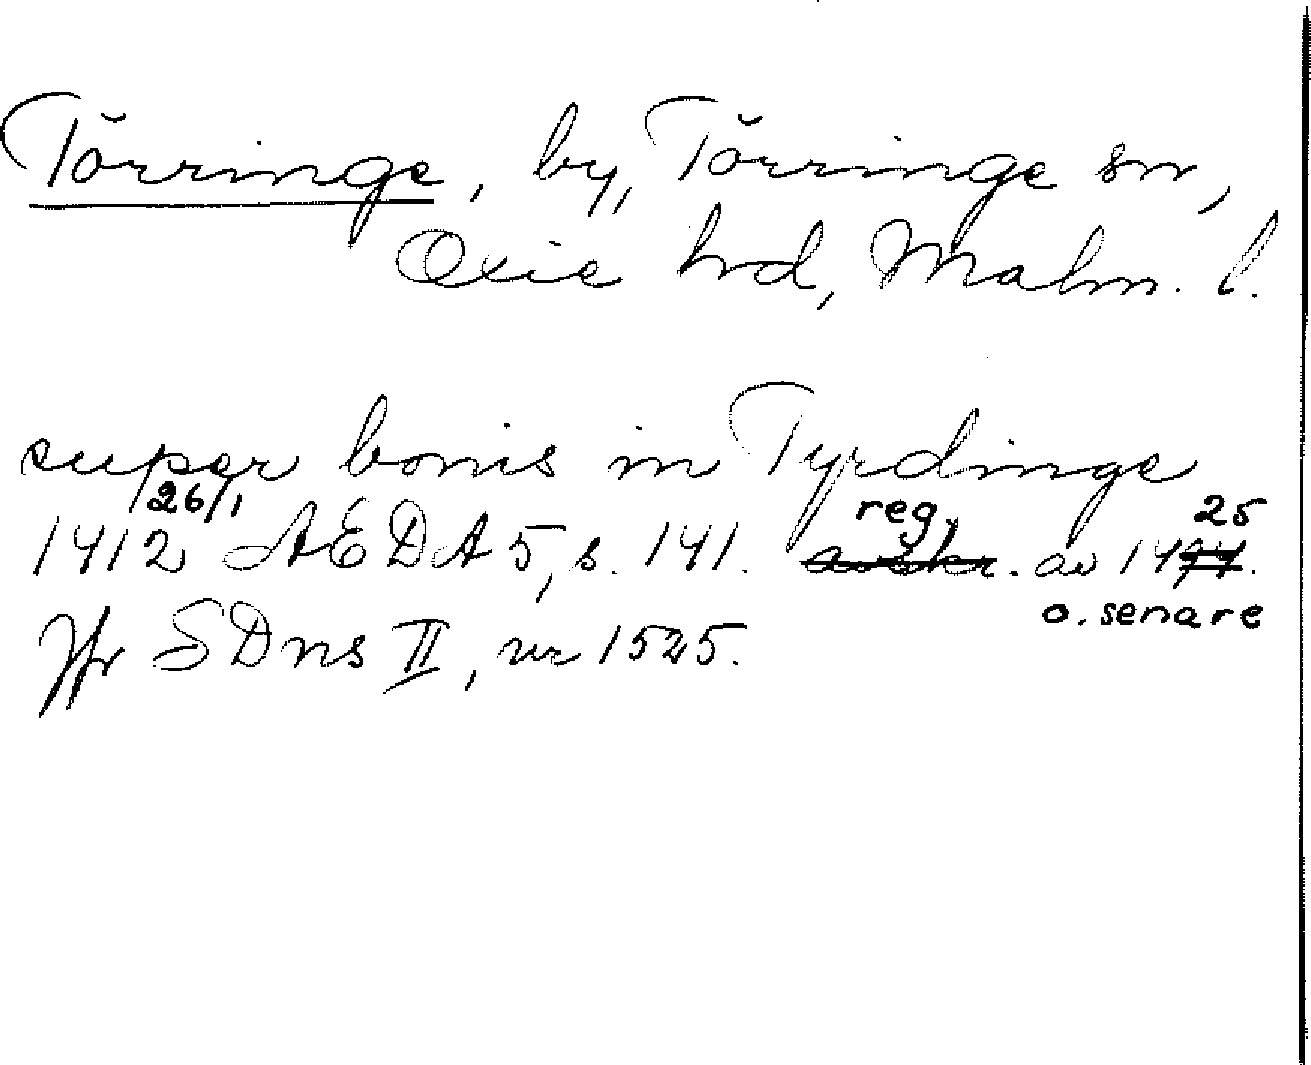 Törringe, by, Törringe sn,
Oxie hrd, Malm. l.
super bonis in Tyrdinge
26/1 reg, 25
1412 AEDA 5, s. 141. avskr. av 1494.
o. senare
Jfr SDns II, nr 1525.